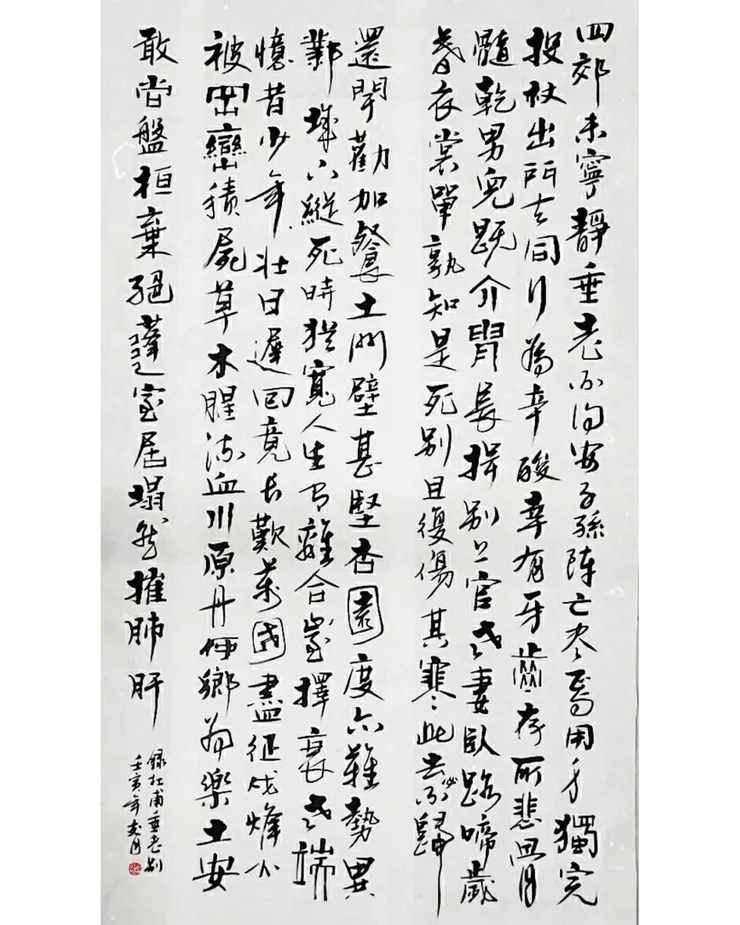 四郊未寧靜垂老不得安子孫陣亡盡焉用身獨完
投杖出門去同行為辛酸幸有牙齒存所悲骨
髓乾男兒既介冑長揖別上官老妻臥路啼歲
暮衣裳單孰知是死別且復傷其寒此去必不歸
還聞勸加餐土門壁甚堅杏園度亦難勢異
鄴城下縱死時猶寬人生有離合豈擇衰老端
憶昔少年壯日遲回竟長歎萬國盡征戍烽火
被岡巒積屍草木腥流血川原丹何鄉為樂土安
敢尚盤桓棄絕蓬室居塌然摧肺肝
錄杜甫垂老別
壬寅年春月